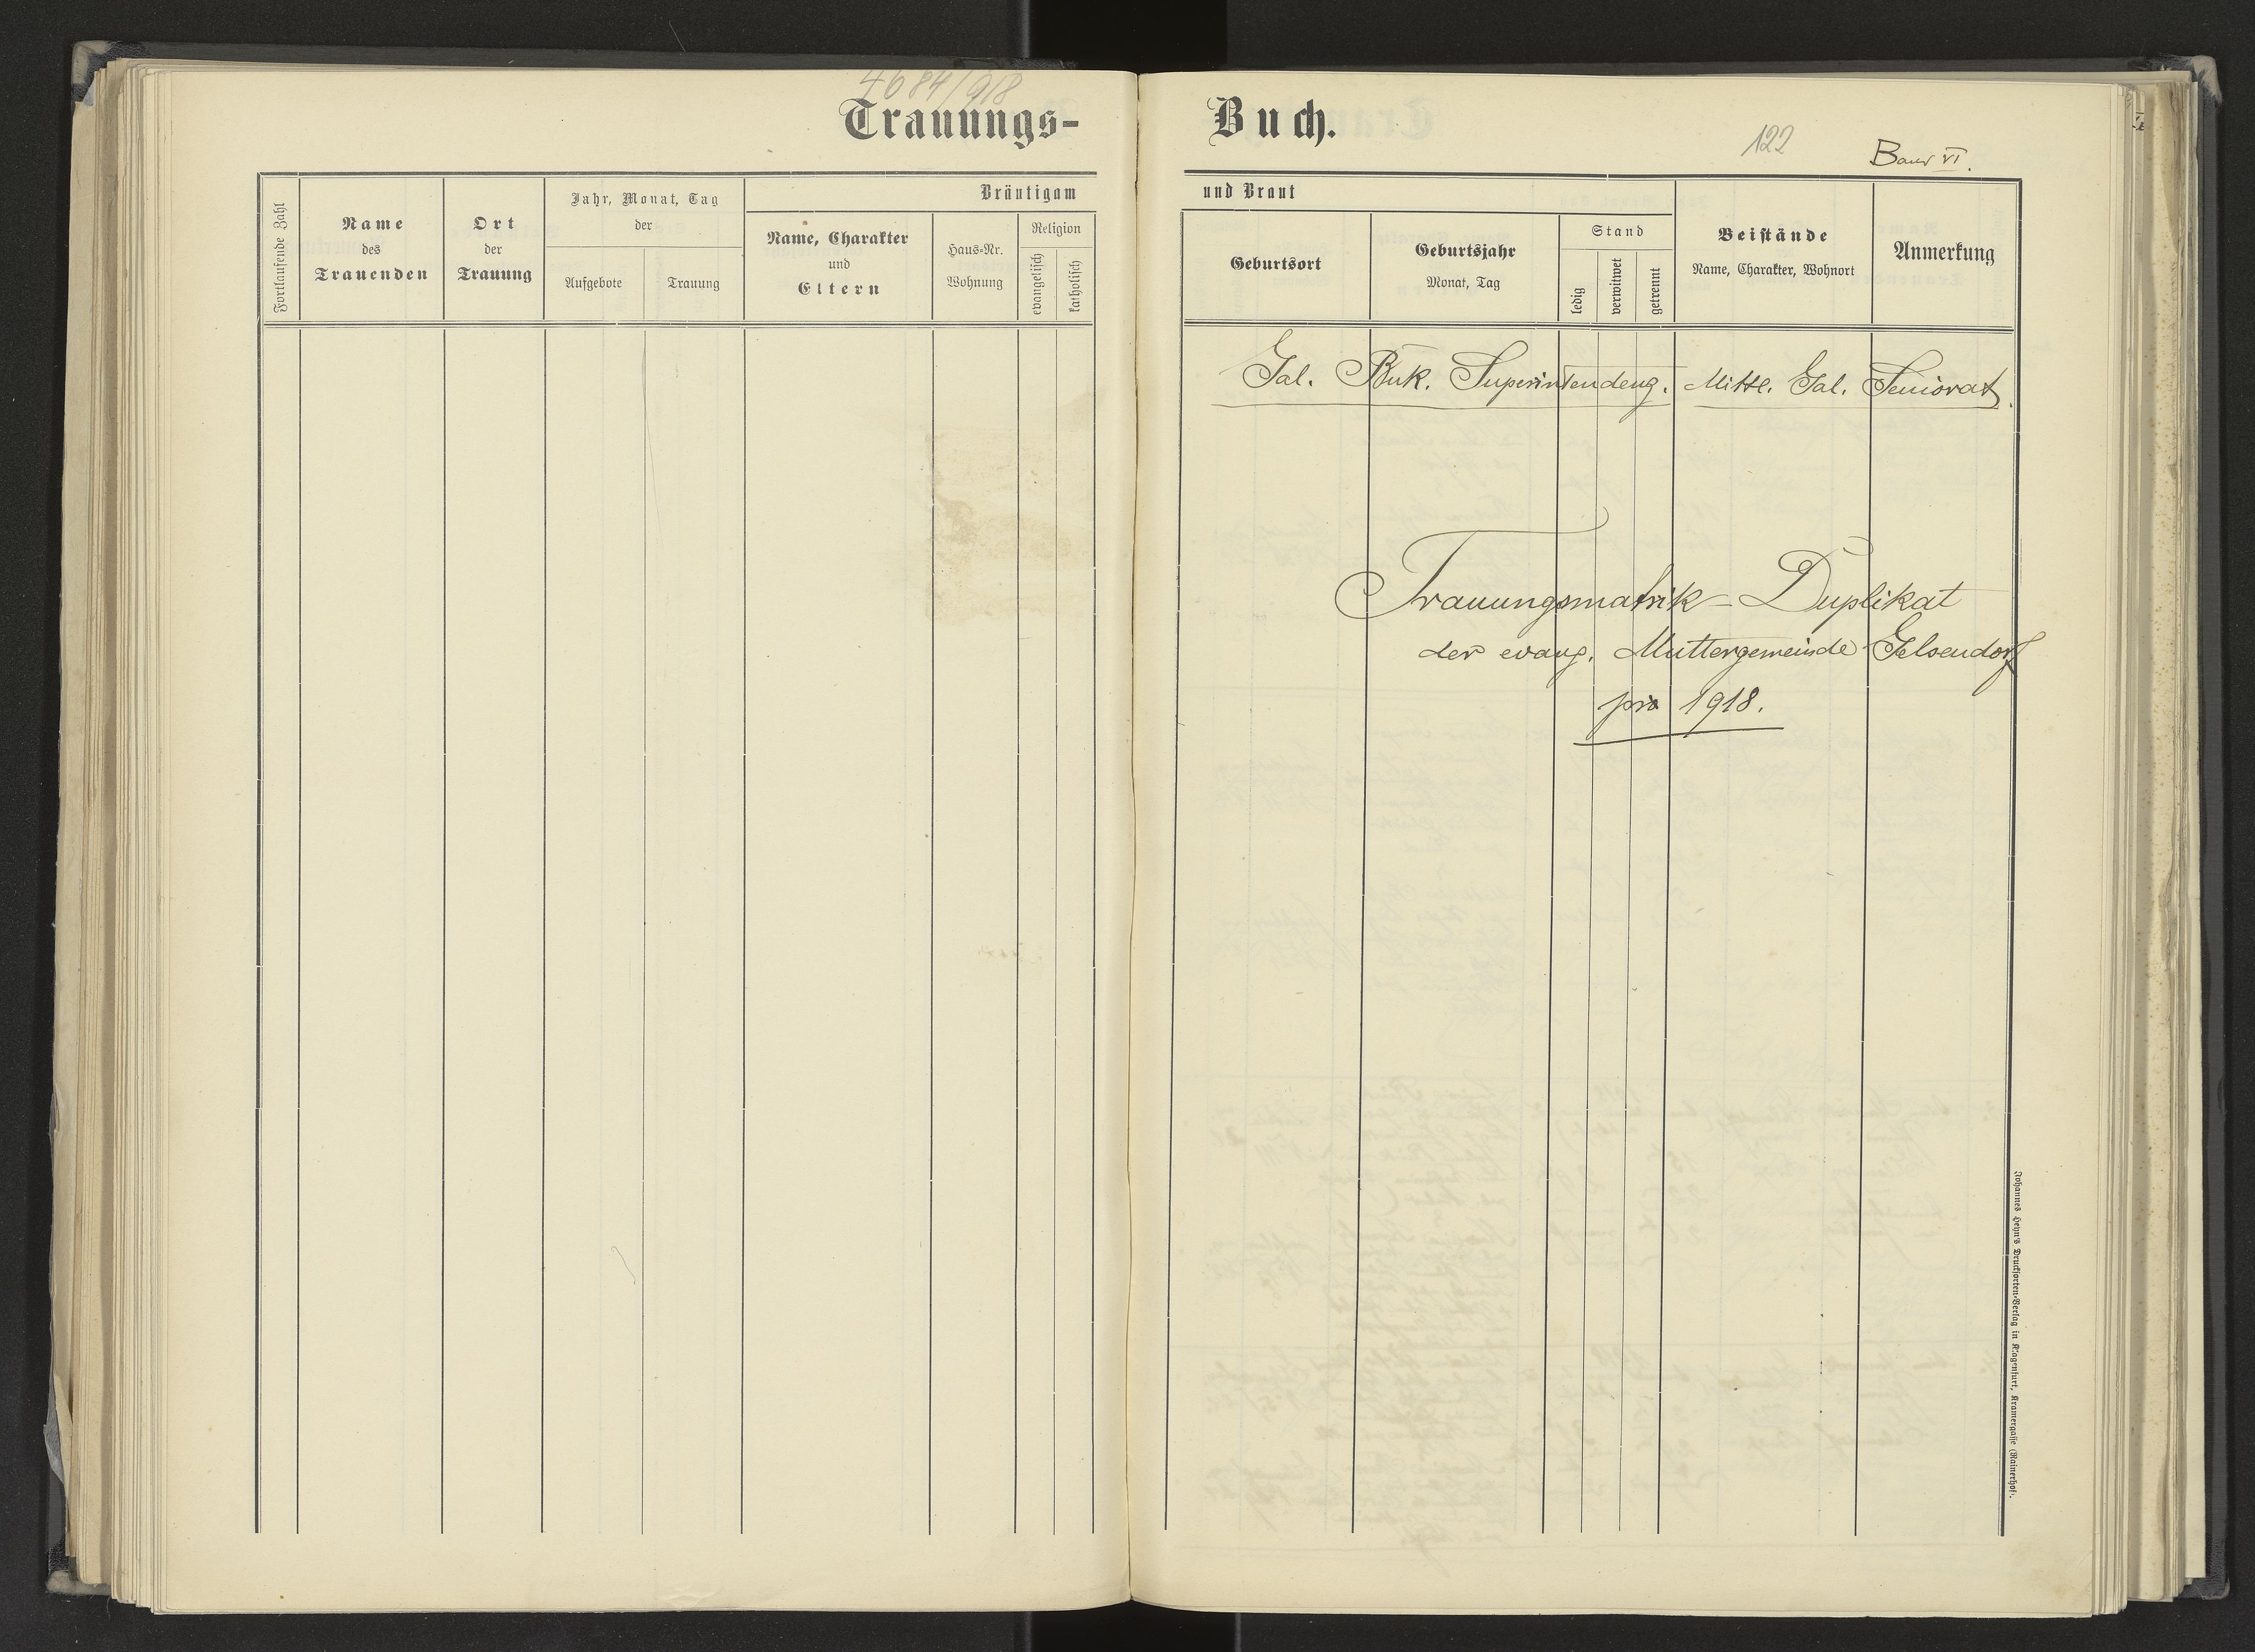 4684/918
Trauungs-
Fortlaufende Zahl
Name
des
Trauenden
Ort
der
Trauung
Jahr, Monat, Tag
der
Aufgebote
Trauung
Bräutigam
Name, Charakter
und
Eltern
Haus-Nr.
Wohnung
Religion
evangelisch
katholisch
Buch.
122
Band VI.
und Braut
Geburtsort
Geburtsjahr
Monat, Tag
Stand
ledig
verwitwet
getrennt
Beistände
Name, Charakter, Wohnort
Anmerkung
Gal. Buk. Superintendenz. Mittl. Gal. Seniorat.
Trauungsmatrik-Duplikat
der evang. Muttergemeinde Gelsendorf
pro 1918.
Johannes Heyn's Drucksorten-Verlag in Klagenfurt, Kramergasse (Rainerhof).